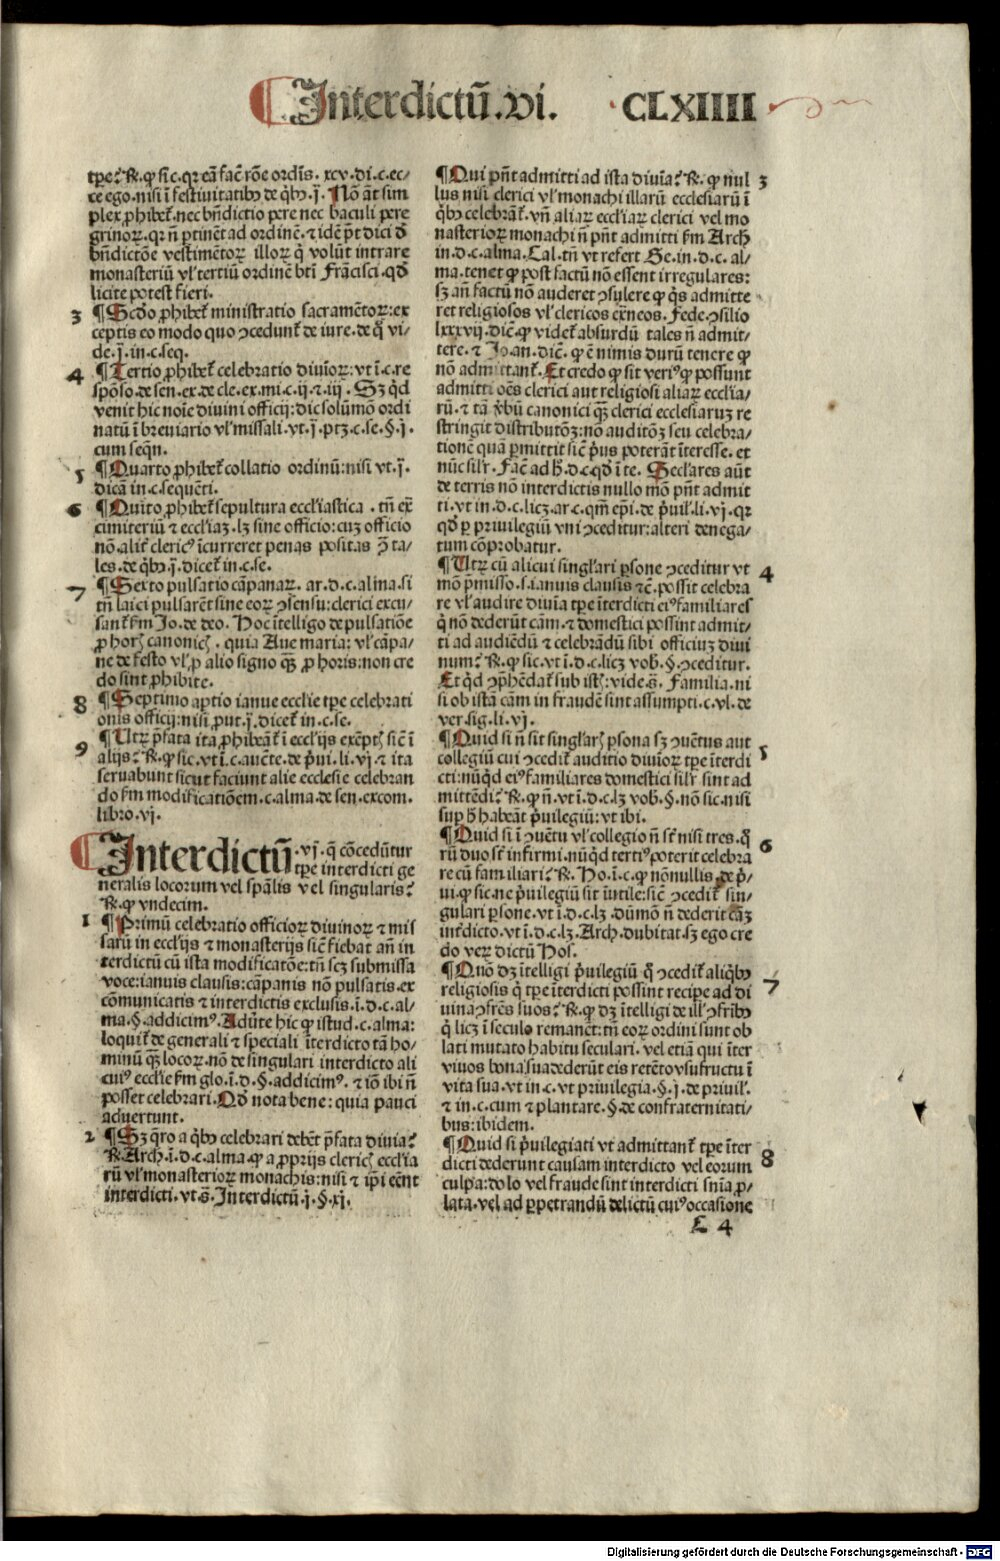 Interdictū.vi. CLXIIII
tꝑe? ℞. ꝙ sic. qꝛ eā fac̄ rōe ordīs. xcv. di. c. ec/
ce ego. nisi ī festiuitatibꝰ de qͥbꝰ. j̄. Nō āt sim
plex ꝓhibet̄. nec bn̄dictio pere nec baculi pere
grinoꝝ. qꝛ n̄ ꝑtinēt ad ordinē. ⁊ idē pōt dici d̄
bn̄dictōe vestimētoꝝ illoꝝ q̄ volūt intrare
monasteriū vl̓ tertiū ordinē bti Frācisci. qd̓
licite potest fieri.
3 ¶ Scd̓o ꝓhibet̄ ministratio sacramētoꝝ: ex
ceptis eo modo quo ꝯcedunt̄ de iure. de q̄ vi/
de. j̄. in. c. seq.
4 ¶ Tertio ꝓhibet̄ celebratio diuīoꝝ: vt ī. c. re
spōso. de sen. ex. de cle. ex. mi. c. ij. ⁊ iij. Sꝫ qͥd
venit hic noīe diuini officij: dic solūmō ordi
natū ī breuiario vl̓ missali. vt. j̄. ptꝫ. c. se. §. j.
cum seqn̄.
5 ¶ Quarto ꝓhibet̄ collatio ordinū: nisi vt. j̄.
dicā in. c. sequēti.
6 ¶ Quīto ꝓhibet̄ sepultura eccl̓iastica. tn̄ ex̄
cimiteriū ⁊ eccl̓iaꝫ. lꝫ sine officio: cuꝫ officio
nō. alit̄ clericꝰ īcurreret penas positas ꝯ̄ ta/
les. de qͥbꝰ. j̄. dicet̄ in. c. se.
7 ¶ Sexto pulsatio cāpanaꝝ. ar. d. c. alma. si
tn̄ laici pulsarēt sine eoꝝ ꝯsensu: clerici excu/
sant̄ fm̄ Jo. de deo. Hoc ītelligo de pulsatiōe
ꝓ horis canonicis. quia Aue maria: vl̓ cāpa/
ne de festo vl̓ ꝓ alio signo qͣꝫ ꝓ horis: non cre
do sint ꝓhibite.
8 ¶ Septimo aꝑtio ianue ecclie tꝑe celebrati
onis officij: nisi ꝓut. j̄. dicet̄ in. c. se.
9 ¶ Utꝝ p̄fata ita ꝓhibeāt̄ ī eccl̓ijs exēptis sic̄ ī
alijs? ℞. ꝙ sic. vt ī. c. auēte. de p̄ui. li. vj. ⁊ ita
seruabunt sicut faciunt alie ecclesie celebran
do fm̄ modificatiōem. c. alma. de sen. excom.
libro. vj.
Interdictū. vj. q̄ cōcedūtur
tpe interdicti ge
neralis locorum vel sp̄alis vel singularis?
℞. ꝙ vndecim.
1 ¶ Primū celebratio officioꝝ diuinoꝝ ⁊ mis
sarū in eccl̓ijs ⁊ monasterijs sic̄ fiebat an̄ in
terdictū cū ista modificatōe: tn̄ scꝫ submissa
voce: ianuis clausis: cāpanis nō pulsatis. ex
cōmunicatis ⁊ interdictis exclusis. ī. d. c. al/
ma. §. addicimꝰ. Aduerte hic ꝙ istud. c. alma:
loquit̄ de generali ⁊ speciali īterdicto tā ho/
minū qͣꝫ locoꝝ. nō de singulari interdicto ali
cuiꝰ ecclie fm̄ glo. ī. d. §. addicimꝰ. ⁊ iō ibi n̄
posset celebrari. Qd̓ nota bene: quia pauci
aduertunt.
2 ¶ Sꝫ qͥro a qͥbꝰ celebrari debēt p̄fata diuīa?
℞. Arch. ī. d. c. alma. ꝙ a ꝓprijs clericis eccl̓ia
rū vl̓ monasterioꝝ monachis: nisi ⁊ ip̄i eēnt
interdicti. vt. s̄. Interdictū. j. §. xj.
¶ Qui pn̄t admitti ad ista diuīa? ℞. ꝙ nul 3
lus nisi clerici vl̓ monachi illarū ecclesiarū ī
qͥbꝰ celebrāt̄. vn̄ aliaꝝ eccl̓iaꝝ clerici vel mo
nasterioꝝ monachi n̄ pn̄t admitti fm̄ Arch
in. d. c. alma. Cal. tn̄ vt refert Ge. in. d. c. al/
ma. tenet ꝙ post factū nō essent irregulares:
sꝫ an̄ factū nō auderet ꝯsulere ꝙ qͥs admitte
ret religiosos vl̓ clericos extraneos. Fede. ꝯsilio
lxxxvij. dic̄. ꝙ videt̄ absurdū tales n̄ admit/
tere. ⁊ Joan. dic̄. ꝙ ē nimis durū tenere ꝙ
nō admittant̄. Et credo ꝙ sit veriꝰ ꝙ possunt
admitti oēs clerici aut religiosi aliaꝝ eccl̓ia/
rū. ⁊ tā v̓bū canonici qͣꝫ clerici ecclesiaruꝫ re
stringit distributōꝫ: nō auditōꝫ seu celebra/
tionē quā ꝑmittit sic̄ pͥus poterāt īteresse. et
nūc sil̓r. Fac̄ ad h̓. d. c. qd̓ ī te. Seclares aūt
de terris nō interdictis nullo mō pn̄t admit
ti. vt in. d. c. licꝫ. ar. c. qm̄ epi. de p̓uil. li. vj. qꝛ
qd̓ ꝑ priuilegiū vni ꝯceditur: alteri denega/
tum cōprobatur.
¶ Utꝝ cū alicui singl̓ari ꝑsone ꝯceditur vt 4
mō p̄misso. s. ianuis clausis ⁊c̄. possit celebra
re vl̓ audire diuīa tꝑe īterdicti eiꝰ familiares
q̄ nō dederūt cām. ⁊ domestici possint admit/
ti ad audiēdū ⁊ celebrādū sibi officiuꝫ diui
num? ℞. ꝙ sic. vt ī. d. c. licꝫ vob̓. §. ꝯceditur.
Et qͥd ꝯp̄hēdat̄ sub istis: vide. s̄. Familia. ni
si ob istā cām in fraudē sint assumpti. c. vl. de
ver. sig. li. vj.
¶ Quid si n̄ sit singl̓aris ꝑsona sꝫ ꝯuētus aut 5
collegiū cui ꝯcedit̄ auditio diuīoꝝ tꝑe īterdi
cti: nūqͥd eiꝰ familiares domestici sil̓r sint ad
mittēdi? ℞. ꝙ n̄. vt ī. d. c. lꝫ vob̓. §. nō sic. nisi
suꝑ h̓ habeāt p̓uilegiū: vt ibi.
¶ Quid si ī ꝯuētu vl̓ collegio n̄ sūt nisi tres. q̄ 6
rū duo sūt infirmi. nūqͥd tertiꝰ poterit celebra
re cū familiari? ℞. Ho. ī. c. ꝙ nōnullis. de p̓/
ui. ꝙ sic. ne p̓uilegiū sit īutile: sic̄ ꝯcedit̄ sin/
gulari ꝑsone. vt ī. d. c. lꝫ. dūmō n̄ dederit cāꝫ
īnt̓dicto. vt ī. d. c. lꝫ. Arch. dubitat. sꝫ ego cre
do veꝝ dictū Hos.
¶ Quō dꝫ ītelligi p̓uilegiū q̄ ꝯcedit̄ aliqͥbꝰ 7
religiosis q̄ tꝑe īterdicti possint recipe ad di
uina ꝯfrēs suos? ℞. ꝙ dꝫ ītelligi de ill̓ ꝯfrībꝰ
q̄ licꝫ ī seculo remanēt: tn̄ eoꝝ ordini sunt ob
lati mutato habitu seculari. vel etiā qui īter
viuos bona sua dederūt eis retēto vsufructu ī
vita sua. vt in. c. vt priuilegia. §. j. de priuil̓.
⁊ in. c. cum ⁊ plantare. §. de confraternitati/
bus: ibidem.
¶ Quid si p̓uilegiati vt admittant̄ tꝑe īter 8
dicti dederunt causam interdicto vel eorum
culpa: dolo vel fraude sint interdicti sn̄ia ꝓ/
lata. vel ad ꝑpetrandū delictū cuiꝰ occasione
L 4
Digitalisierung gefördert durch die Deutsche Forschungsgemeinschaft - DFG